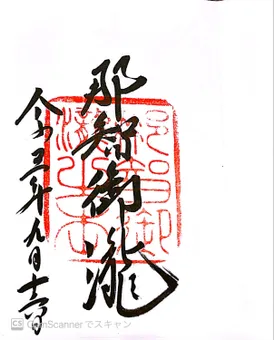 那智御瀧
令和五年九月十六日
CS CamScanner でスキャン